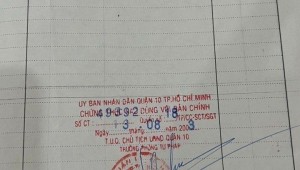 ỦY BAN NHÂN DÂN QUẬN 10 TP.HỒ CHÍ MINH
CHỨNG THỰC ĐÚNG VỚI BẢN CHÍNH
49392 18
Số CT Quyển số TP/CC-SCT/SGT
Ngày 13 tháng 08 năm 2003
T.U.Q. CHỦ TỊCH UBND QUẬN 10
TRƯỞNG PHÒNG TƯ PHÁP